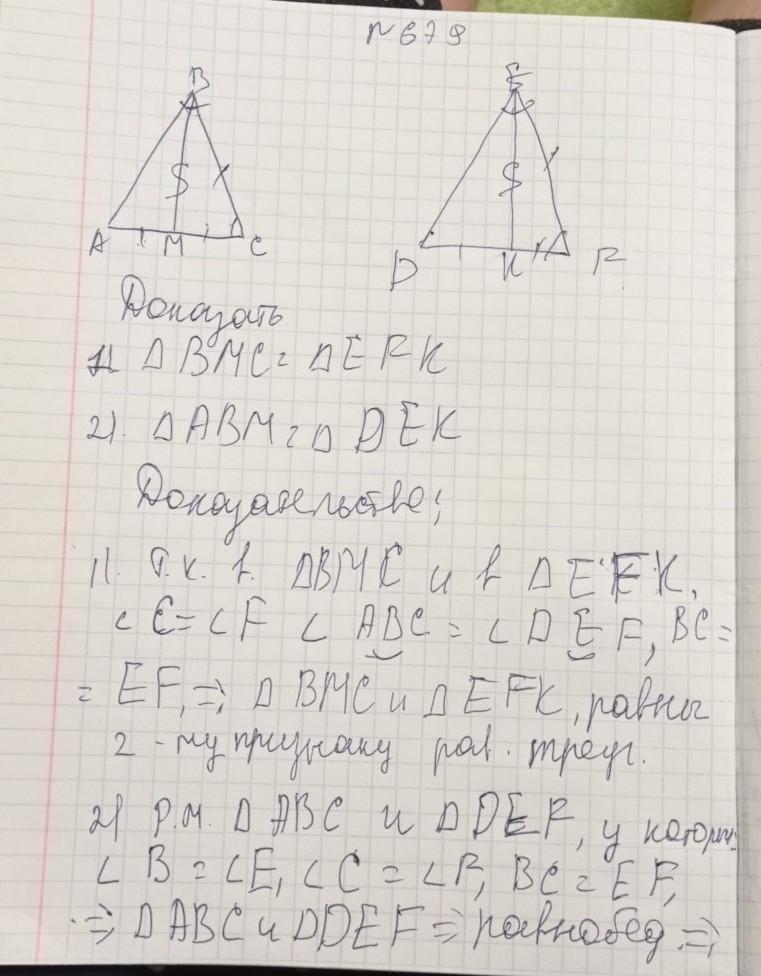 N 679
B
E
S
S
A
M
C
D
K
F
Доказать
1) ΔBMC = ΔEFK
2). ΔABM = ΔDEK
Доказательство;
1). Т.к. в. ΔBMC и в ΔEFK,
∠C=∠F ∠ABC = ∠DEF, BC=
= EF, ⇒ ΔBMC и ΔEFK, равны
2-му признаку рав. треуг.
2) Р.м. ΔABC и ΔDEF, у которых
∠B = ∠E, ∠C = ∠F, BC = EF,
⇒ ΔABC и ΔDEF ⇒ равнобед ⇒